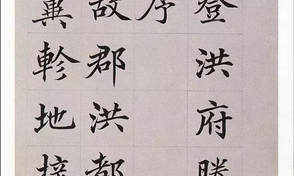 登洪府勝
序
故郡洪都
翼軫地接